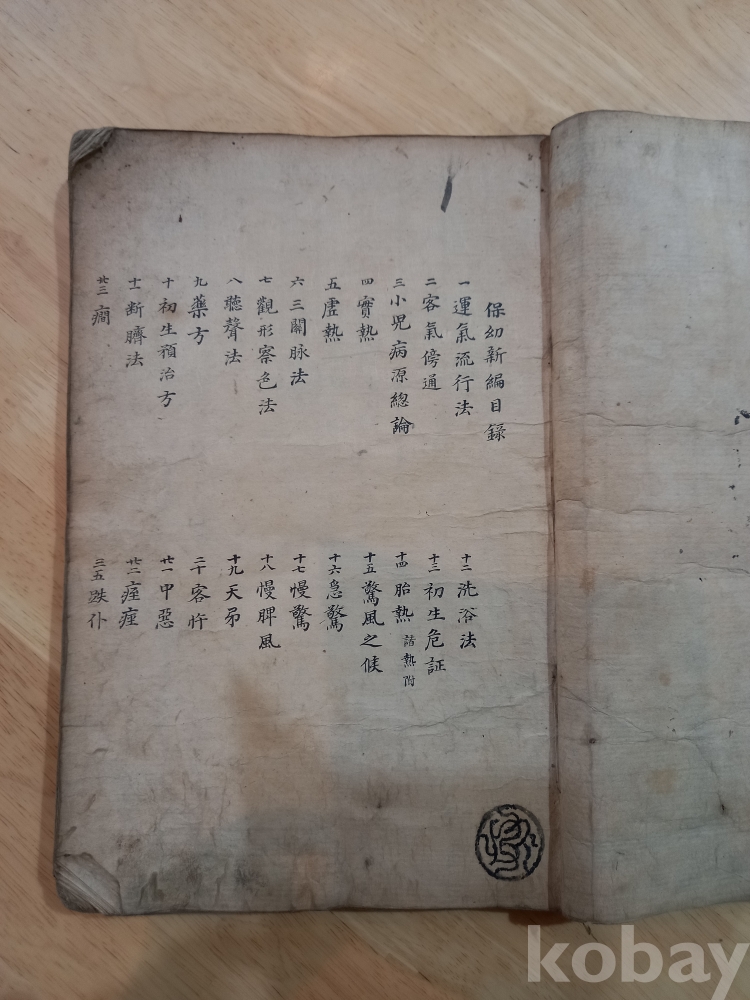 保幼新編目錄
一運氣流行法
二客氣傍通
三小児病源總論
四實熱
五虛熱
六三關脉法
七觀形察色法
八聽聲法
九藥方
十初生預治方
十一断臍法
十二洗浴法
十三初生危証
十四胎熱 諸熱附
十五驚風之候
十六急驚
十七慢驚
十八慢脾風
十九天弔
二十客忤
廿一中惡
廿二痙痓
廿三癎
三五跌仆
kobay